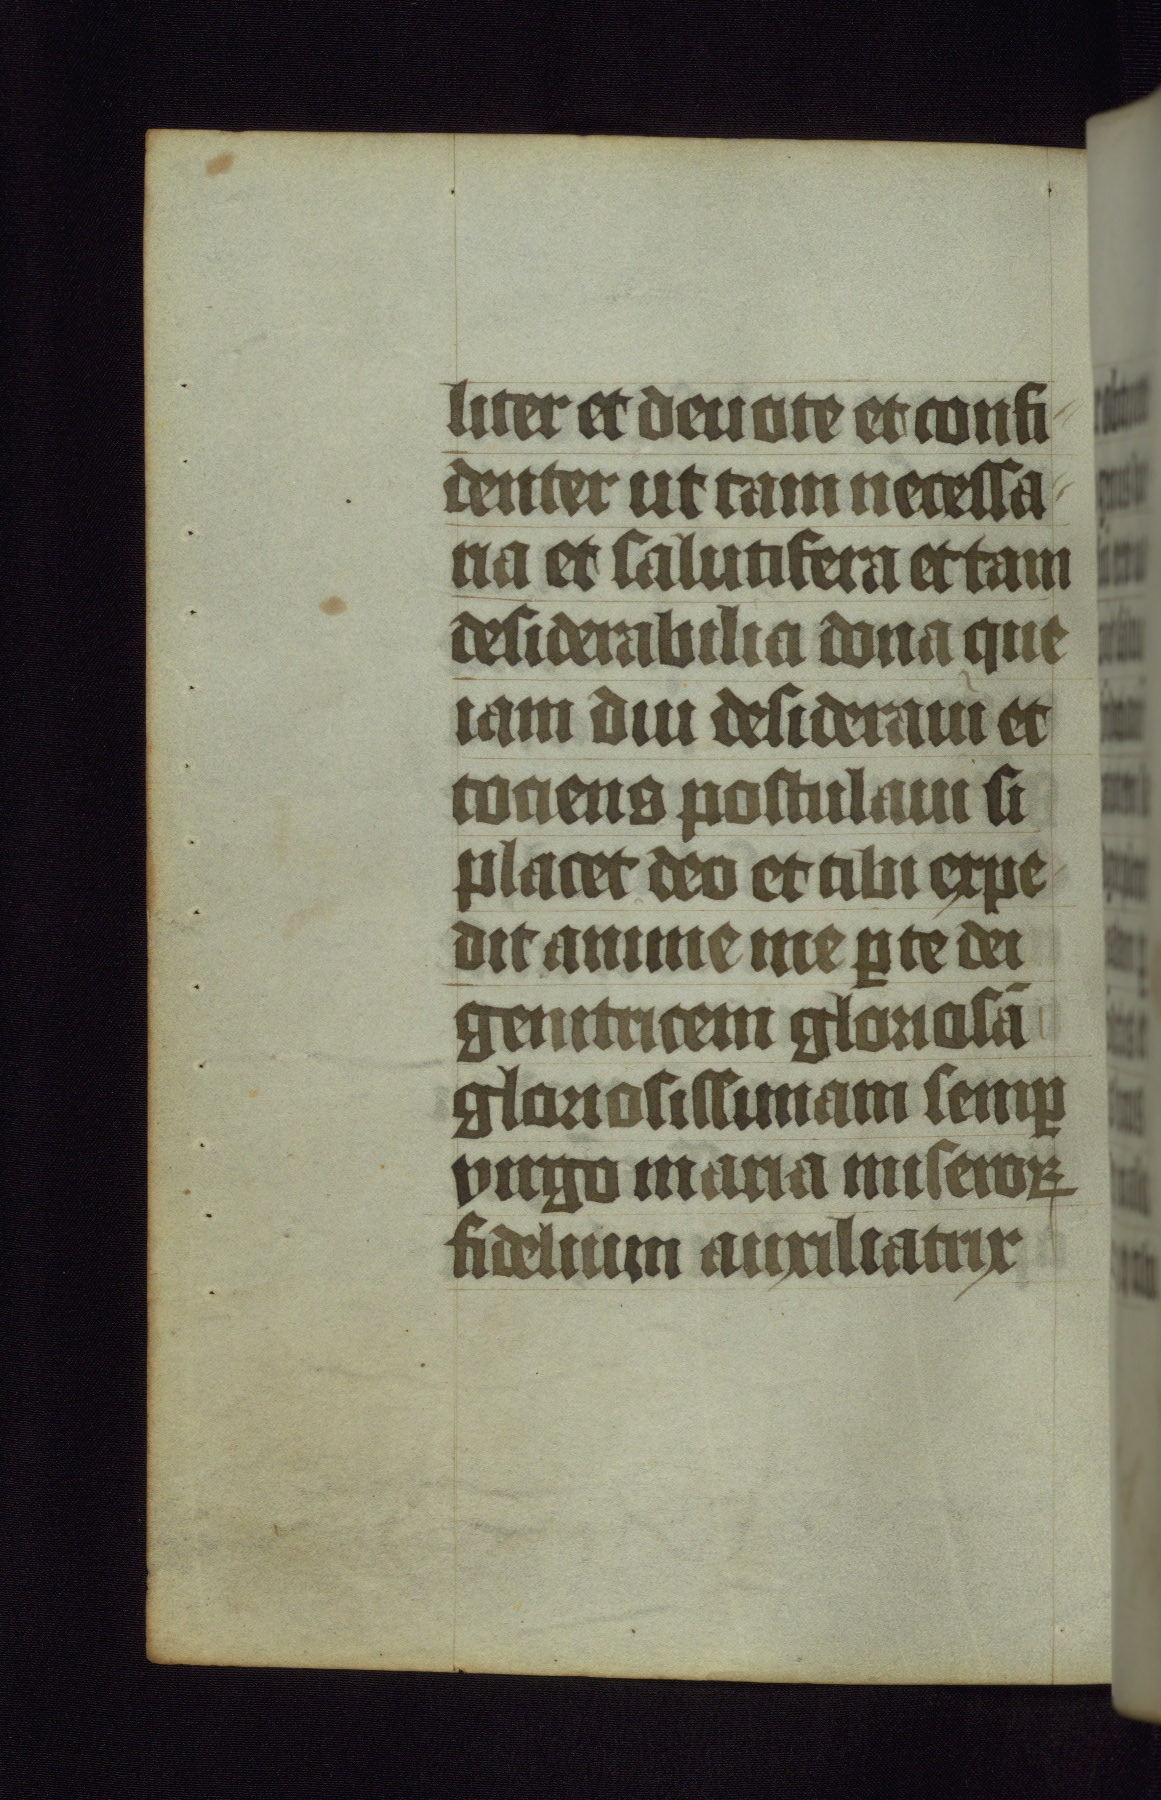 liter et deuote et confi
denter ut tam necessa
ria et salutifera et tam
desiderabilia dona que
iam diu desideraui et
tociens postulaui si
placet deo et tibi expe
dit anime me ꝑ te dei
genitricem gloriosā
gloriosissimam semꝑ
virgo maria miseroꝝ
fidelium auxiliatrix